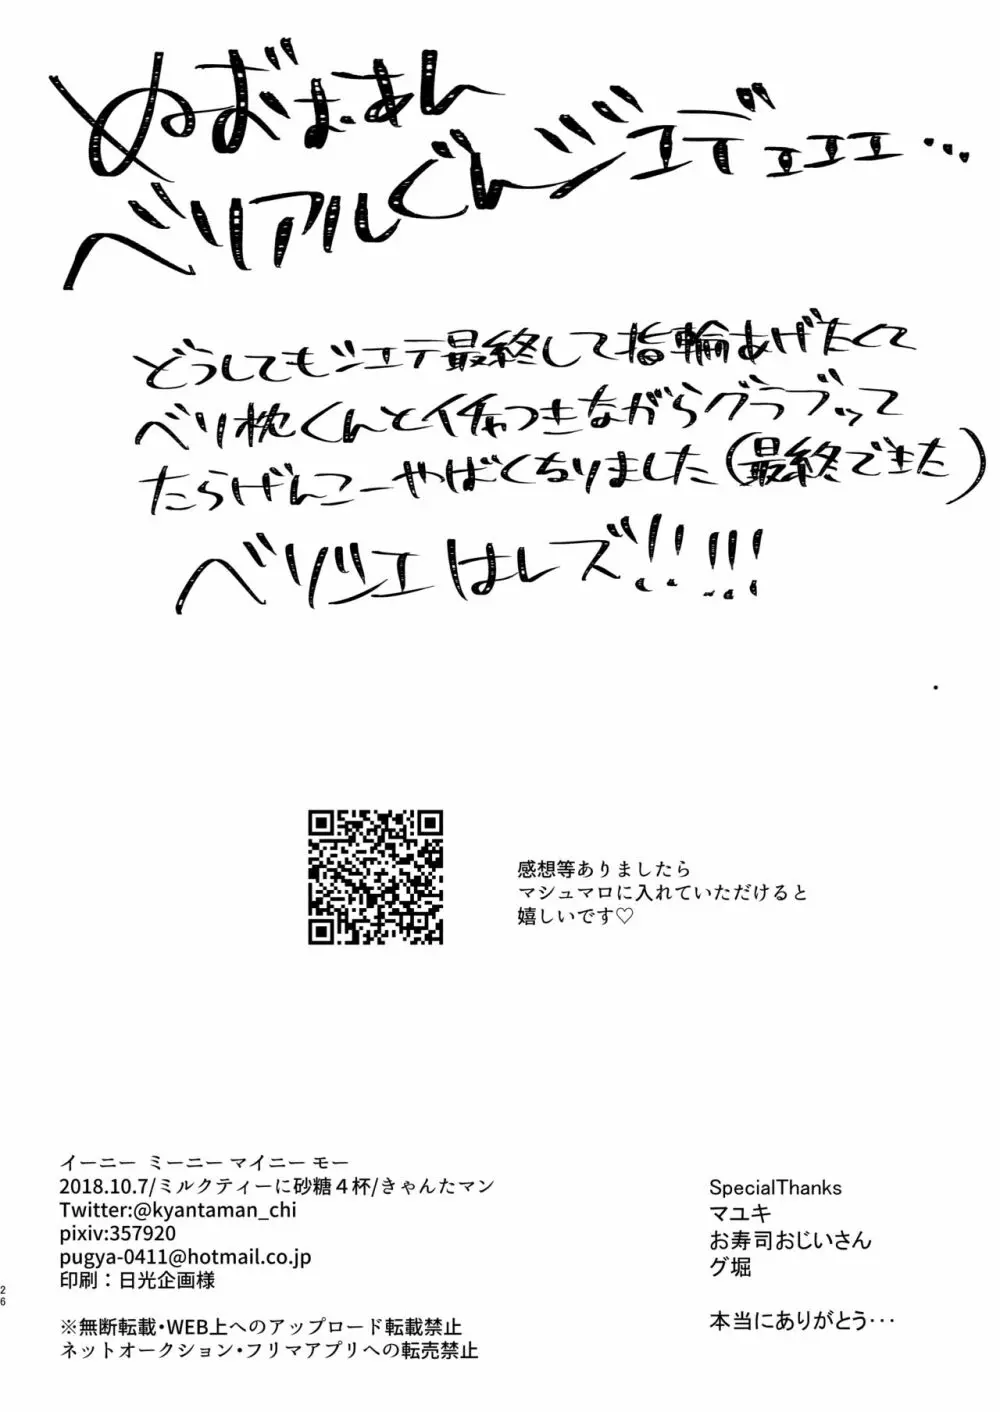 ぬおまあん
ベリアルぐんジエデェェェ…
どうしてもシエテ最終して指輪あげたくて
ベリ枕くんとイチャつきながらグラブッて
たらげんこーやばくなりました(最終できた)
ベリシエはレズ!!!!!
感想等ありましたら
マシュマロに入れていただけると
嬉しいです♡
イーニー ミーニー マイニー モー
2018.10.7/ミルクティーに砂糖4杯/きゃんたマン
Twitter:@kyantaman_chi
pixiv:357920
pugya-0411@hotmail.co.jp
印刷:日光企画様
※無断転載・WEB上へのアップロード転載禁止
ネットオークション・フリマアプリへの転売禁止
SpecialThanks
マユキ
お寿司おじいさん
グ堀
本当にありがとう・・・
26